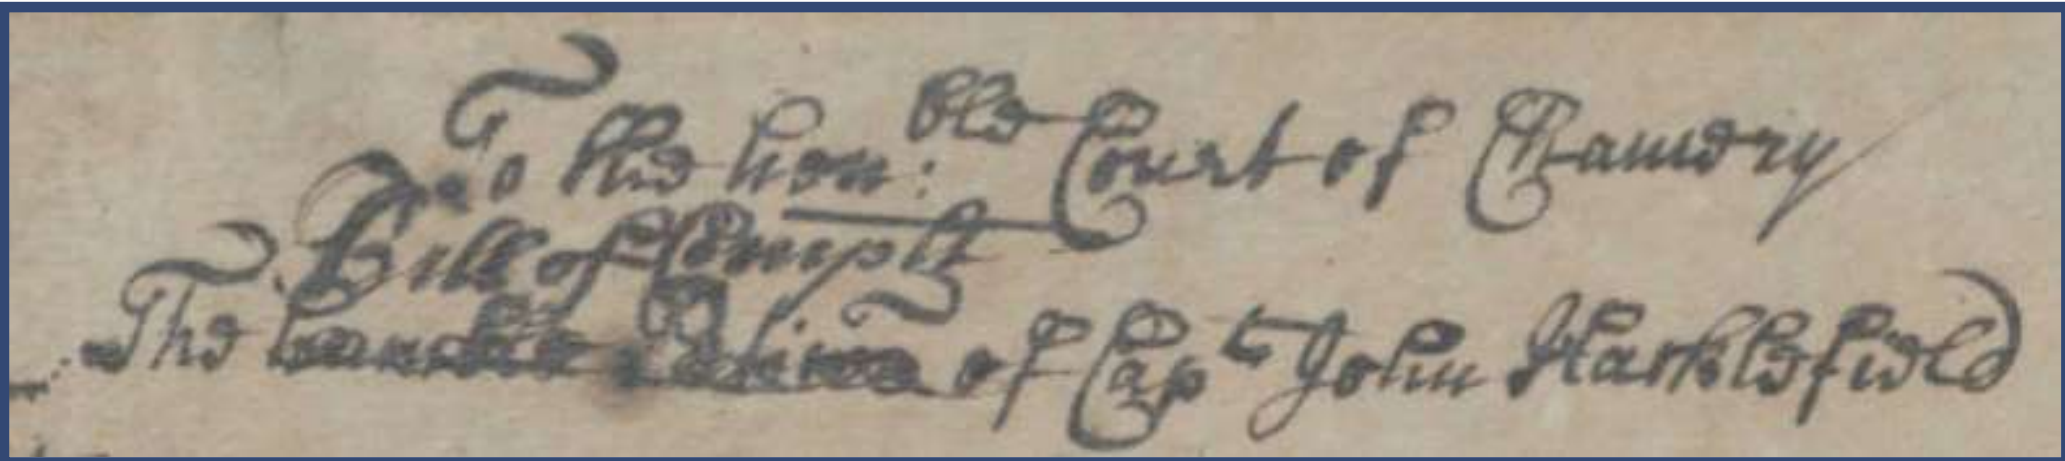 To the hon:ble Court of Chancery
Bill of Complt
The humble of Capt John Harklefield